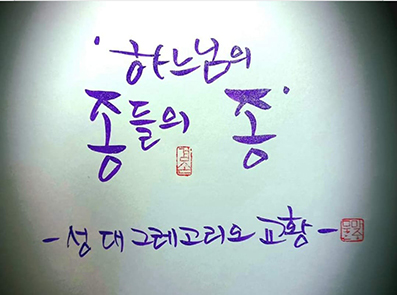 '하느님의
종들의 종'
-성 대 그레고리오 교황-